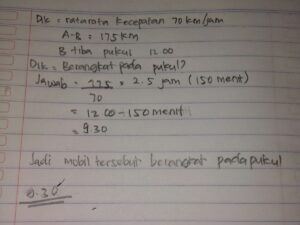 Dik = rata rata kecepatan 70 km/jam
A-B = 175 km
B tiba pukul 12 00
Dik = Berangkat pada pukul?
Jawab = 175 = 2.5 jam (150 menit)
70
= 12 00 - 150 menit
= 9.30
Jadi mobil tersebut berangkat pada pukul
9.30